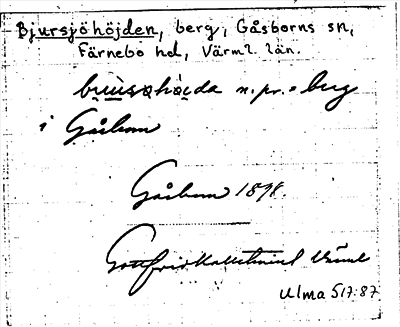 Bjursjöhöjden, berg, Gåsborns sn,
Färnebo hd, Värml. län.
n. pr. = berg
i Gåsborn
Gåsborn 1898.
Gottfrid Kallstenius
Ulma 517:87